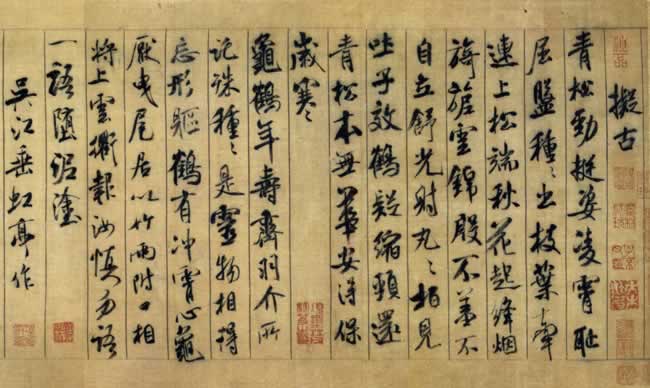 擬古
青松勁挺姿凌霄恥
屈盤種〻出枝葉牽
連上松端秋花起絳烟
旖旎雲錦殷不羞不
自立舒光射丸〻栢見
吐子效鶴疑縮頸還
青松本無華安得保
歲寒
龜鶴年壽齊羽介所
託殊種〻是靈物相得
忘形軀鶴有冲霄心龜
厭曳尾居以竹兩附口相
將上雲衢報汝慎勿語
一語墮泥塗
吳江垂虹亭作